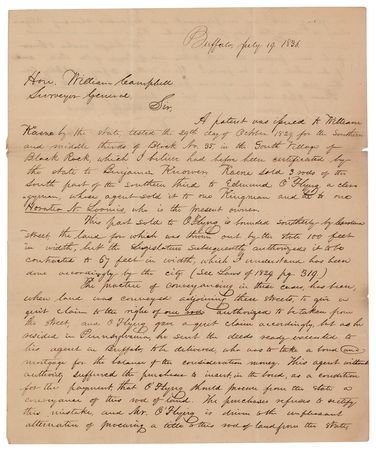 Buffalo, July 19. 1836
Hon. William Campbell
Surveyor General
Sir,
A patent was issued to William
Kane by the state, tested the 29th day of October 1829 for the Southern
and middle thirds of Block No. 35, in the South Village of
Black Rock, which I believe had before been certificated by
the state to Benjamin Knower, Kane sold 3 rods of the
South part of the Southern third to Edmund O'Flyng a
whose agent sold it to one Kingman and to one
Horatio N. who is the present owner.
This part sold to O'Flyng is bounded southerly by
Street the land for which was thrown out by the state 100 feet
in width, but the Legislature subsequently authorized it to be
contracted to 67 feet in width, which I understand has been
done accordingly by the city (See Laws of 1829 pg. 319.)
The practice of conveyancing in these cases, has been,
when land was conveyed adjoining these streets, to give a
quit claim to the right of one rod authorized to be taken from
the street, and O'Flyng gave a quit claim accordingly, but as he
resided in Pennsylvania, he sent the deeds ready executed to
his agent in Buffalo to be delivered, who was to take a bond and
mortgage for the balance of the consideration money. This agent without
authority suffered the purchaser to insert in the bond, as a condition
for the payment that O'Flyng should procure from the state a
conveyance of this rod of land. The purchaser refuses to rectify
this mistake, and Mr. O'Flyng is driven to the unpleasant
alternative of procuring a title to this rod of land from the State,